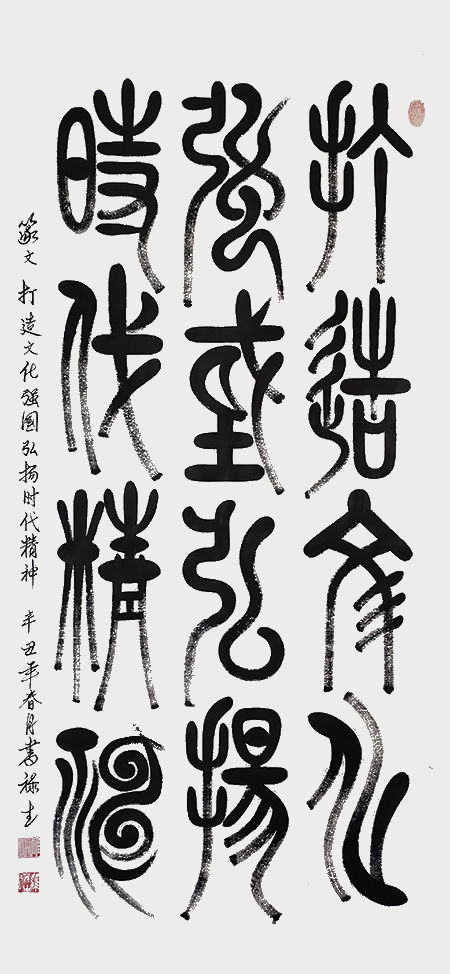 打造彣化
強國弘揚
時代精神
篆文 打造文化强国弘扬时代精神 辛丑年春月書